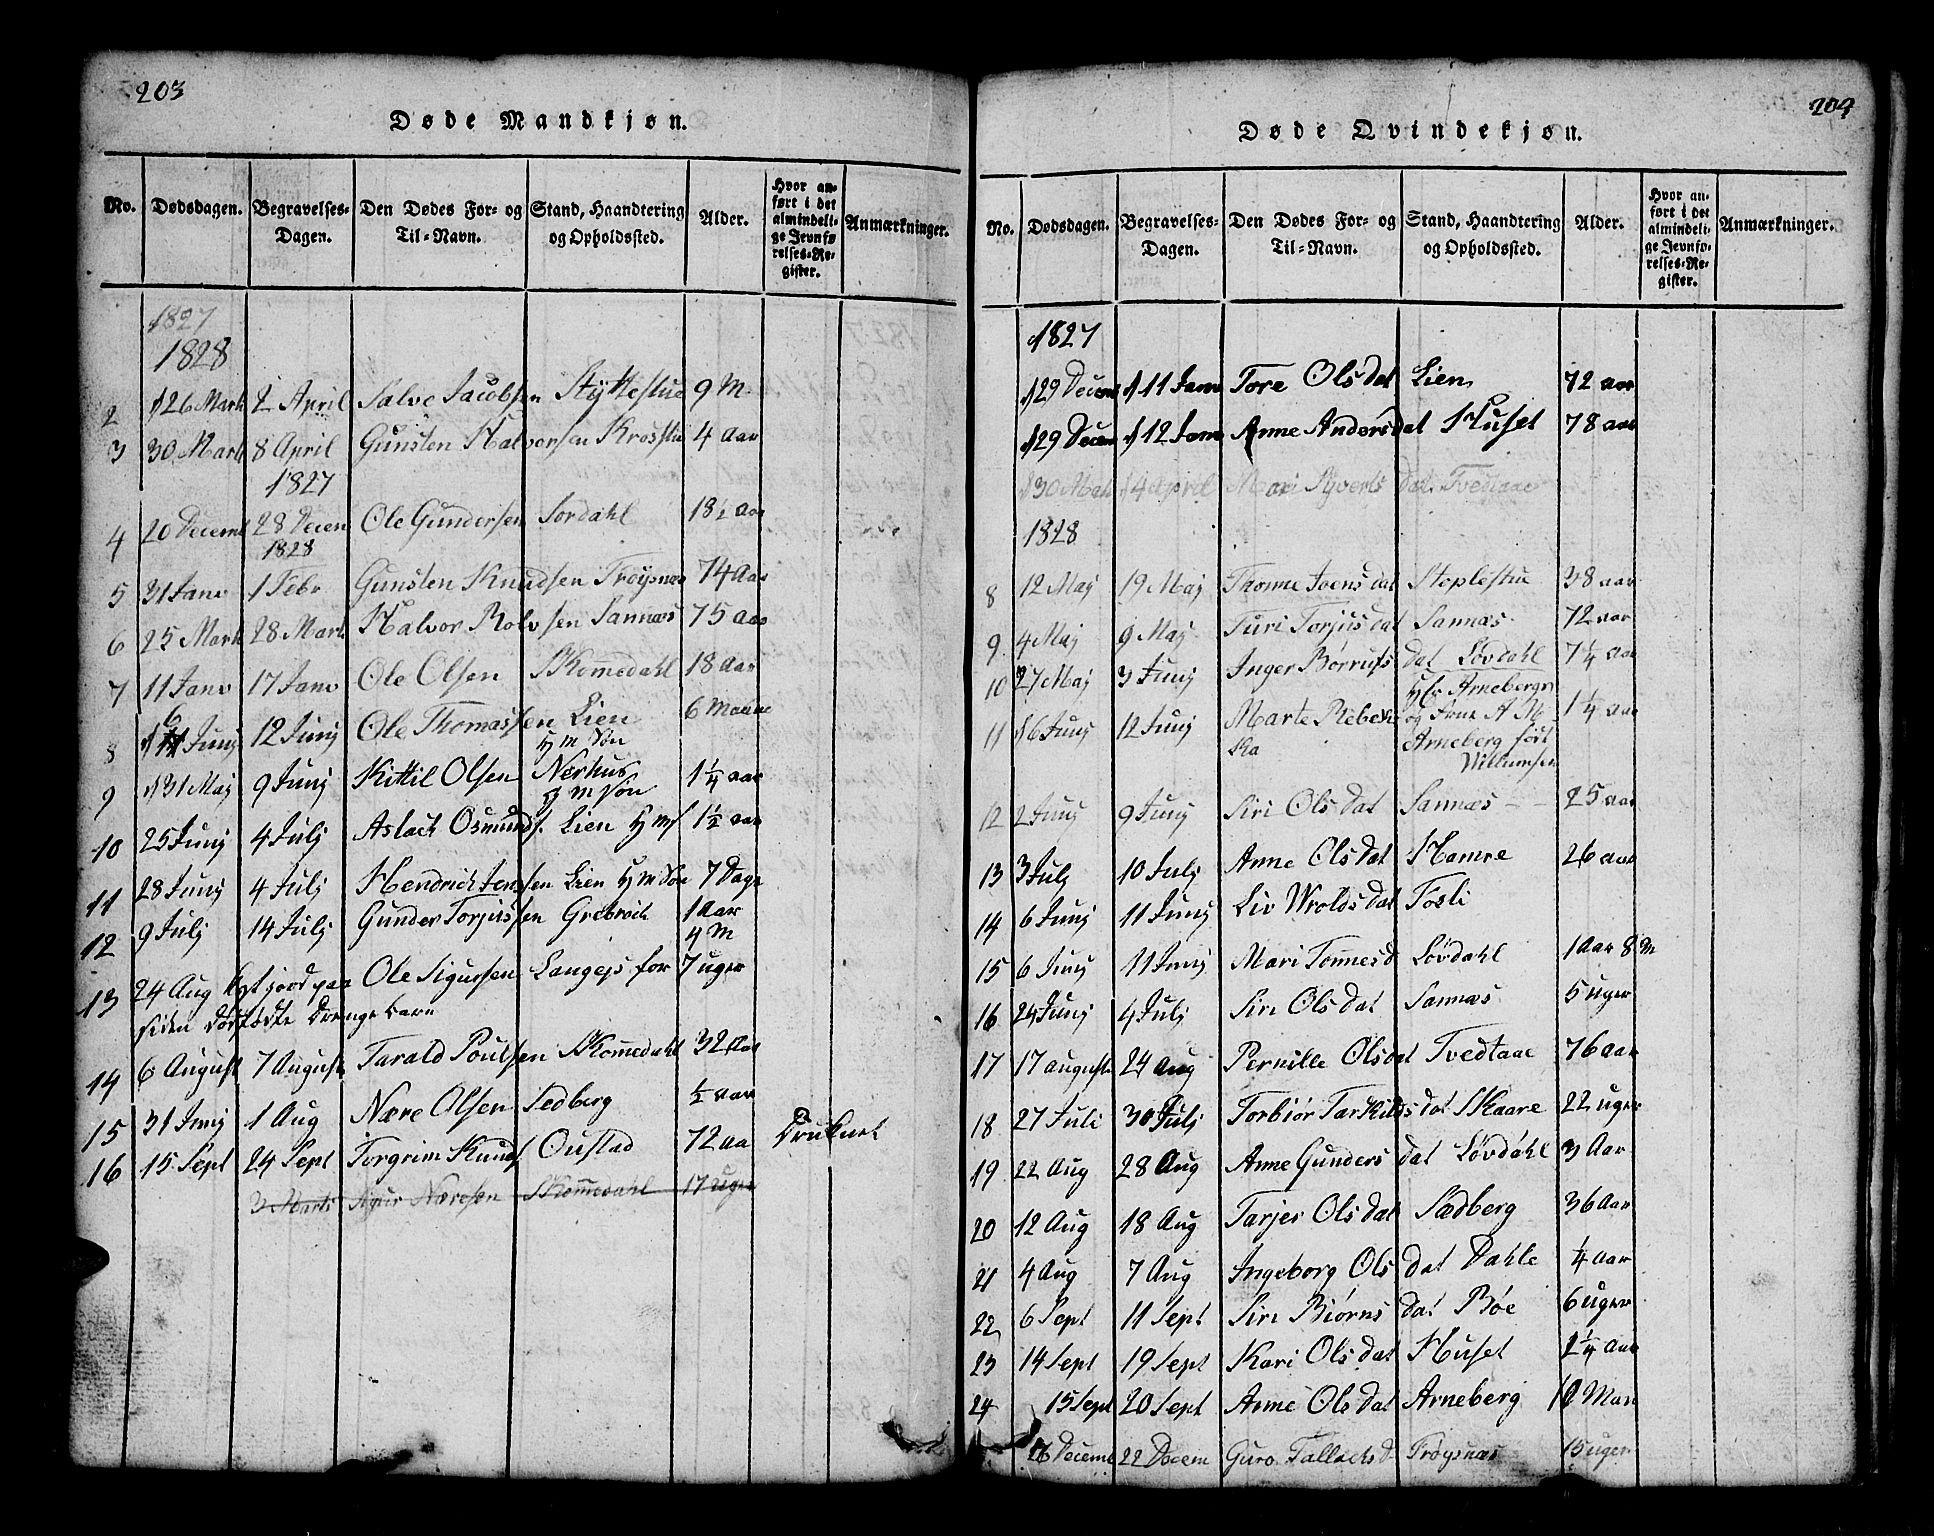 203
Døde Mandkjøn.
No. Dødsdagen. Begravelses-Dagen. Den Dødes For- og Til-Navn. Stand, Haandtering og Opholdssted. Alder. Hvor anført i det almindelige Jevnførelses-Register. Anmærkninger.
1827
1828
2 26 Mart 2 April Salve Jacobsen Stykkestue 9 M
3 30 Mart 8 April Gunsten Halvorsen Krosstue 4 Aar
1827
4 20 Decemb 28 Decem Ole Gundersen Sordahl 18½ Aar
1828
5 31 Janv 1 Febr Gunsten Knudsen Trøysnæs 74 Aar
6 25 Mart 28 Mart Halvor Rolvsen Sannæs 75 Aar
7 11 Janv 17 Janv Ole Olsen Skomedahl 18 Aar
8 6 Junj 12 Junj Ole Thomassen Lien 6 Maane
H M Søn
9 31 Maj 9 Junj Kittil Olsen Nærhus 1¼ aar
g M Søn
10 25 Junj 4 Julj Aslach Osmunds. Lien H M S 1½ aar
11 28 Junj 4 Julj Hendrich Jenssen Lien H M Søn 7 Dage
12 9 Julj 14 Julj Gunder Torjussen Grebrok 1 Aar
4 M
13 24 Aug kast jord paa Ole Sigursen Langejs for 7 uger
siden dødfødte Drenge barn
14 6 August 7 August Tarald Poulsen Skomedahl 32 Aar
15 31 Junj 1 Aug Nære Olsen Sedberg ½ aar
16 15 Sept 24 Sept Torgrim Knuds Oustad 72 aa Druknet
3 Marts Sigur Næresen Skomedahl 17 uger
204
Døde Qvindekjøn.
No. Dødsdagen. Begravelses-Dagen. Den Dødes For- og Til-Navn. Stand, Haandtering og Opholdssted. Alder. Hvor anført i det almindelige Jevnførelses-Register. Anmærkninger.
1827
29 Decem 11 Janv Tore Olsdat Lien 72 aar
29 Decem 12 Janv Anne Andersdat Huset 78 aar
30 Mart 4 April Mari Syvertsdat Tvedtaae
1828
8 12 Maj 19 Maj Thonne Joensdat Stoplestue 38 aar
9 4 Maj 9 Maj Turi Torjusdat Sannæs 72 aar
10 27 Maj 3 Junj Inger Børrufsdat Løvdahl 7¼ aar
11 6 Junj 12 Junj Marte Rebekka Hr Arnebergs 1¼ aar
og Frue A M
Arneberg født
Willumsen
12 2 Junj 9 Junj Siri Olsdat Sannæs 25 aar
13 3 Julj 10 Julj Anne Olsdat Hamre 26 aar
14 6 Junj 11 Junj Liv Wroldsdat Fosli
15 6 Junj 11 Junj Mari Tonnesd Løvdahl 1 Aar 8 M
16 24 Junj 4 Julj Siri Olsdat Sannæs 5 uger
17 17 august 24 Aug Pernille Olsdat Tvedtaae 76 aar
18 27 Juli 30 Julj Torbiør Tarkildsdat Skaare 22 uger
19 22 Aug 28 Aug Anne Gundersdat Løvdahl 3 Aar
20 12 Aug 18 Aug Tarjer Olsdat Sædberg 36 Aar
21 4 Aug 7 Aug Ingeborg Olsdat Dahle ¼ aar
22 6 Sept 11 Sept Siri Biørnsdat Bøe 6 uger
23 14 Sept 19 Sept Kari Olsdat Huset 2¼ aar
24 15 Sept 20 Sept Anne Olsdat Arneberg 10 Maan
16 Decemb 22 Decem Guro Tallachsd Trøysnæs 15 uger